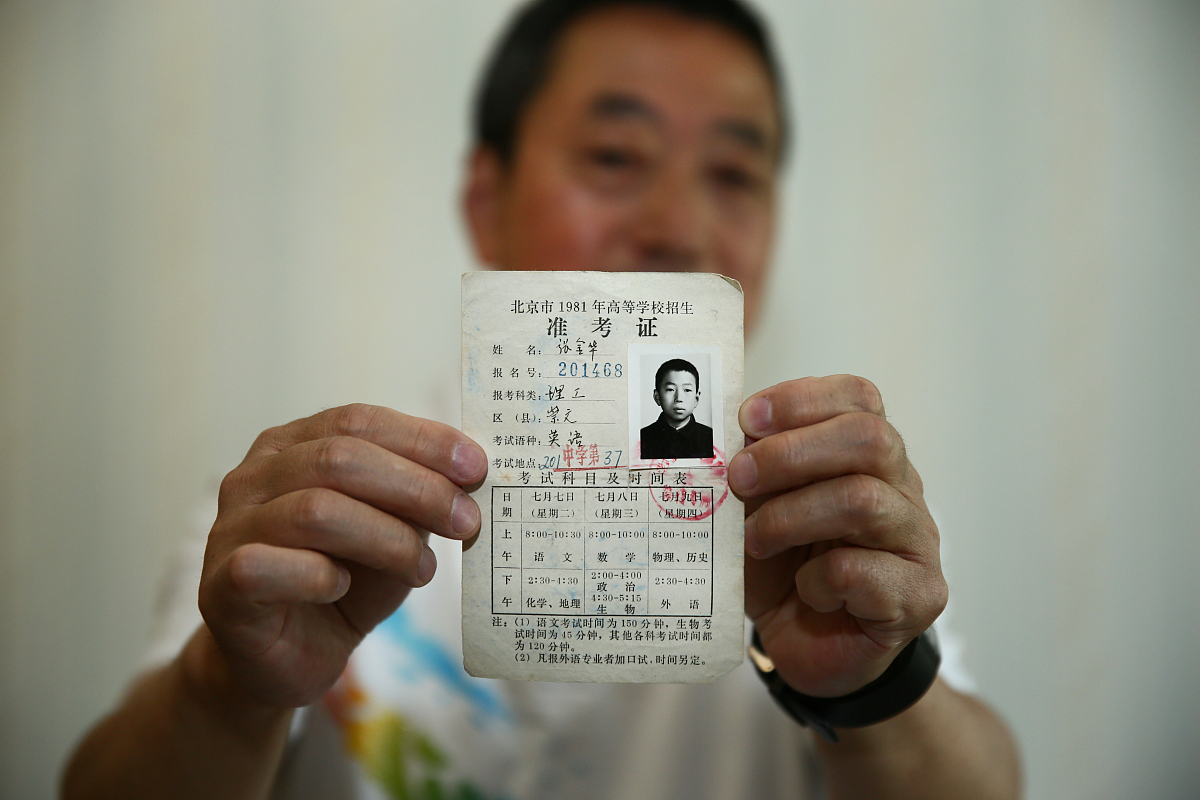 北京市1981年高等学校招生
准考证
姓名：张金华
报名号：201468
报考科类：理工
区（县）：崇文
考试语种：英语
考试地点：201中学第37
考试科目及时间表
日期 七月七日（星期二） 七月八日（星期三） 七月九日（星期四）
上午 8:00-10:30 语文 8:00-10:00 数学 8:00-10:00 物理、历史
下午 2:30-4:30 化学、地理 2:00-4:00 政治 4:30-5:15 生物 2:30-4:30 外语
注：（1）语文考试时间为150分钟，生物考
试时间为45分钟，其他各科考试时间都
为120分钟。
（2）凡报外语专业者加口试，时间另定。